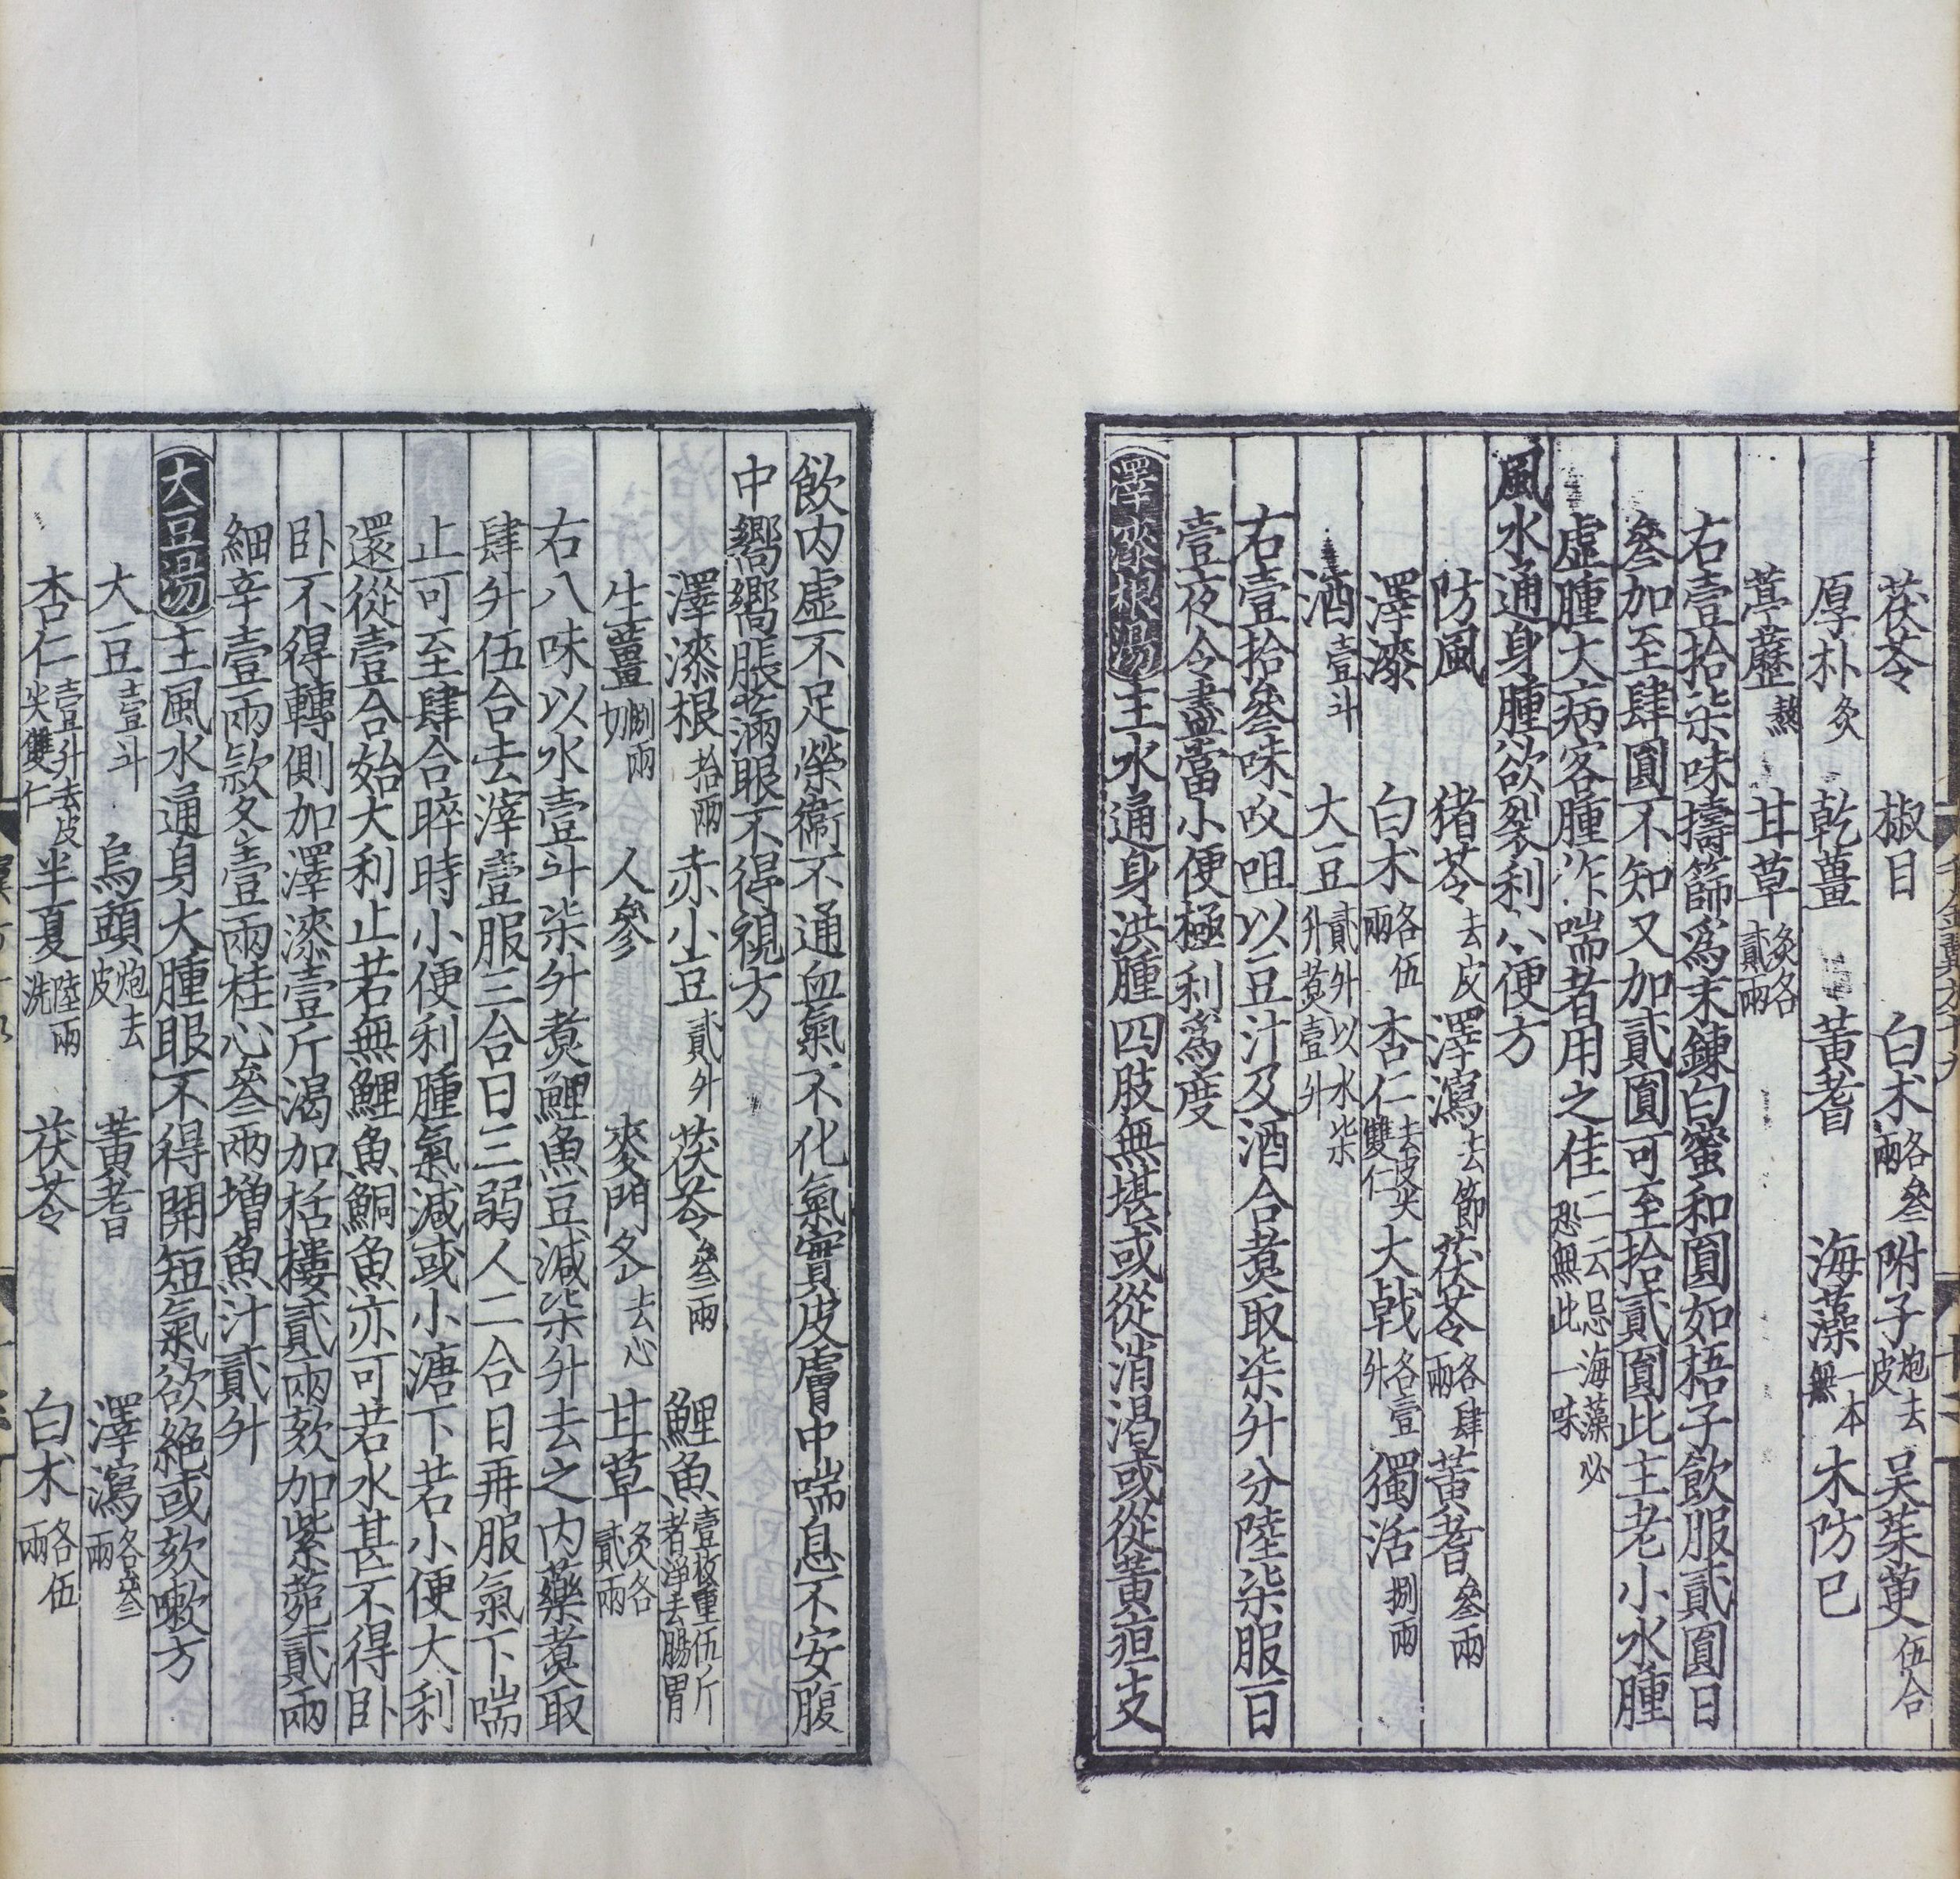 茯苓 椒目 白朮各叁兩 附子炮去皮 吴茱萸伍合
厚朴炙 乾薑 黃耆 海藻一本無 木防巳
葶藶熬 甘草炙各貳兩
右壹拾柒味擣篩為末鍊白蜜和圓如梧子飲服貳圓日
叁加至肆圓不知又加貳圓可至拾貳圓此主老小水腫
虛腫大病客腫作喘者用之佳一云忌海藻必恐無此一味
風水通身腫欲裂利小便方
防風 猪苓去皮 澤瀉去節 茯苓各肆兩 黃耆叁兩
澤漆 白朮各伍兩 杏仁去皮尖雙仁 大戟各壹升 獨活捌兩
酒壹斗 大豆貳升以水柒升煑壹升
右壹拾叁味㕮咀以豆汁及酒合煑取柒升分陸柒服一日
壹夜令盡當小便極利為度
澤漆根湯主水通身洪腫四肢無堪或從消渴或從黃疸支
飲内虛不足榮衞不通血氣不化氣實皮膚中喘息不安腹
中嚮嚮脹滿眼不得視方
澤漆根拾兩 赤小豆貳升 茯苓叁兩 鯉魚壹枚重伍斤者淨去腸胃
生薑捌兩切 人參 麥門冬去心 甘草炙各貳兩
右八味以水壹斗柒升煑鯉魚豆減柒升去之内藥煑取
肆升伍合去滓壹服三合日三弱人二合日再服氣下喘
止可至肆合晬時小便利腫氣減或小溏下若小便大利
還從壹合始大利止若無鯉魚鮦魚亦可若水甚不得卧
卧不得轉側加澤漆壹斤渴加栝樓貳兩欬加紫菀貳兩
細辛壹兩款冬壹兩桂心叁兩增魚汁貳升
大豆湯主風水通身大腫眼不得開短氣欲絶或欬嗽方
大豆壹斗 烏頭炮去皮 黃耆 澤瀉各叁兩
杏仁壹升去皮尖雙仁 半夏陸兩洗 茯苓 白朮各伍兩